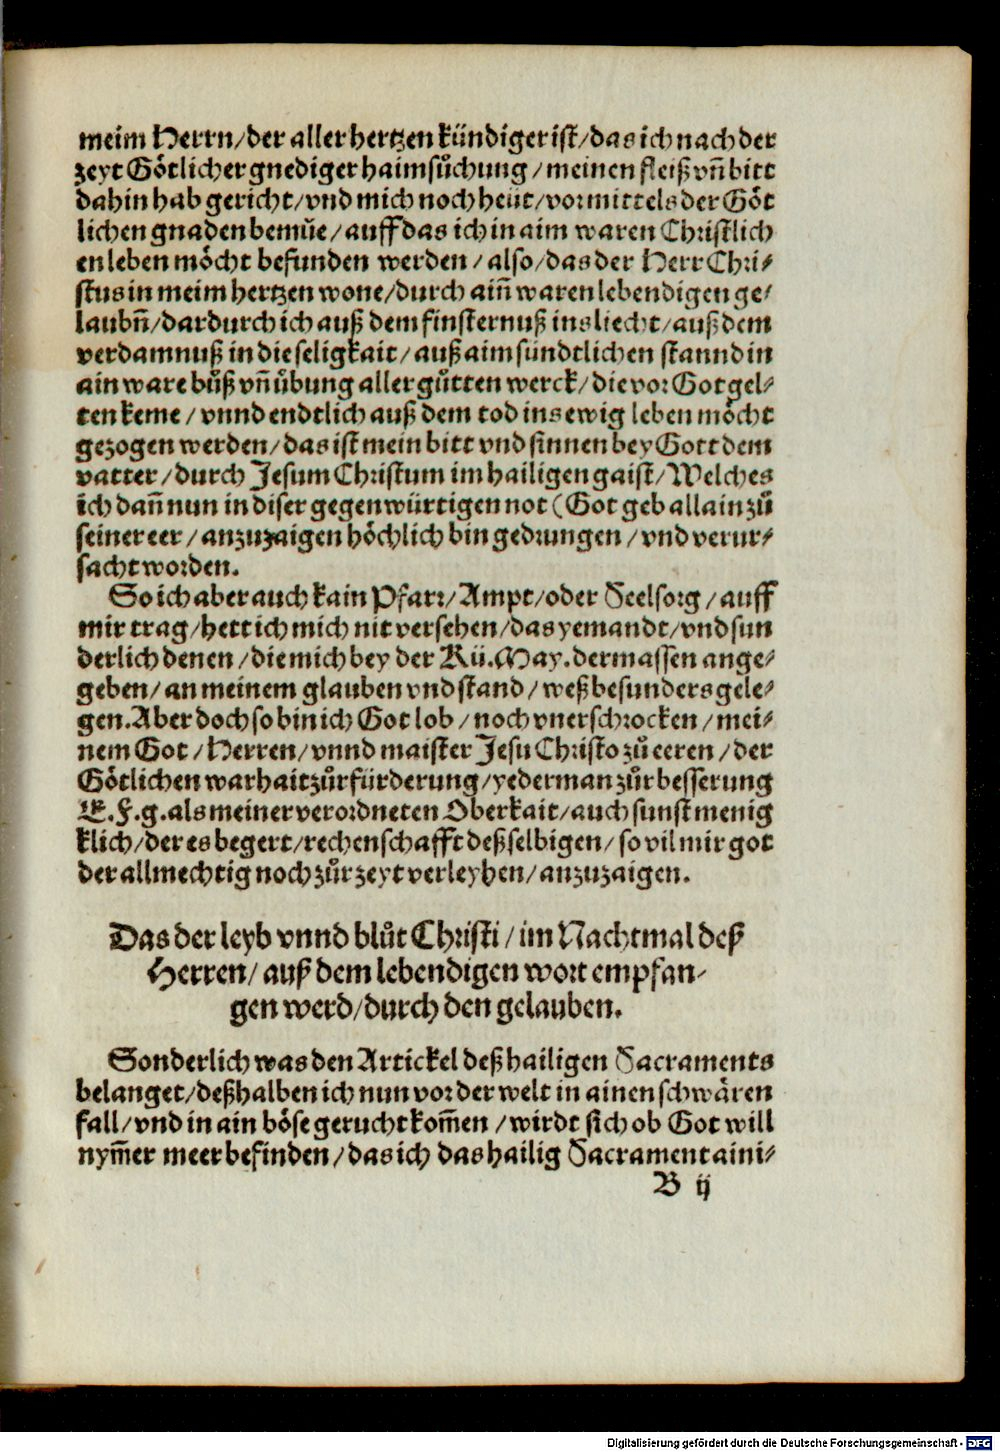 meim Herrn/der aller hertzen kündiger ist/das ich nach der
zeyt Götlicher gnediger haimsůchung/meinen fleiß vn̄ bitt
dahin hab gericht/vnd mich noch heüt/vormittels der Göt
lichen gnaden bemůe/auff das ich in aim waren Christlich
en leben möcht befunden werden/also/das der Herr Chri⸗
stus in meim hertzen wone/durch ain̄ waren lebendigen ge⸗
laubn̄/dardurch ich auß dem finsternuß ins liecht/auß dem
verdamnuß in die seligkait/auß aim sündtlichen stannd in
ain ware bůß vn̄ übung aller gůtten werck/die vor Got gel⸗
ten keme/vnnd endtlich auß dem tod ins ewig leben möcht
gezogen werden/das ist mein bitt vnd sinnen bey Gott dem
vatter/durch Jesum Christum im hailigen gaist/Welches
ich dan̄ nun in diser gegenwürtigen not (Got geb allain zů
seiner eer/anzuzaigen höchlich bin gedrungen/vnd verur⸗
sacht worden.
So ich aber auch kain Pfarr/Ampt/oder Seelsorg/auff
mir trag/hett ich mich nit versehen/das yemandt/vnd sun
derlich denen/die mich bey der Kü. May. dermassen ange⸗
geben/an meinem glauben vnd stand/weß besunders gele⸗
gen. Aber doch so bin ich Got lob/noch vnerschrocken/mei⸗
nem Got/Herren/vnnd maister Jesu Christo zů eeren/der
Götlichen warhait zůr fürderung/yederman zůr besserung
E. F. g. als meiner verordneten Oberkait/auch sunst menig
klich/der es begert/rechenschafft deßselbigen/so vil mir got
der allmechtig noch zůr zeyt verleyhen/anzuzaigen.
Das der leyb vnnd blůt Christi/im Nachtmal deß
Herren/auß dem lebendigen wort empfan⸗
gen werd/durch den gelauben.
Sonderlich was den Artickel deß hailigen Sacraments
belanget/deßhalben ich nun vor der welt in ainen schwären
fall/vnd in ain böse gerucht kom̄en/wirdt sich ob Got will
nym̄er meer befinden/das ich das hailig Sacrament aini⸗
B ij
Digitalisierung gefördert durch die Deutsche Forschungsgemeinschaft - DFG